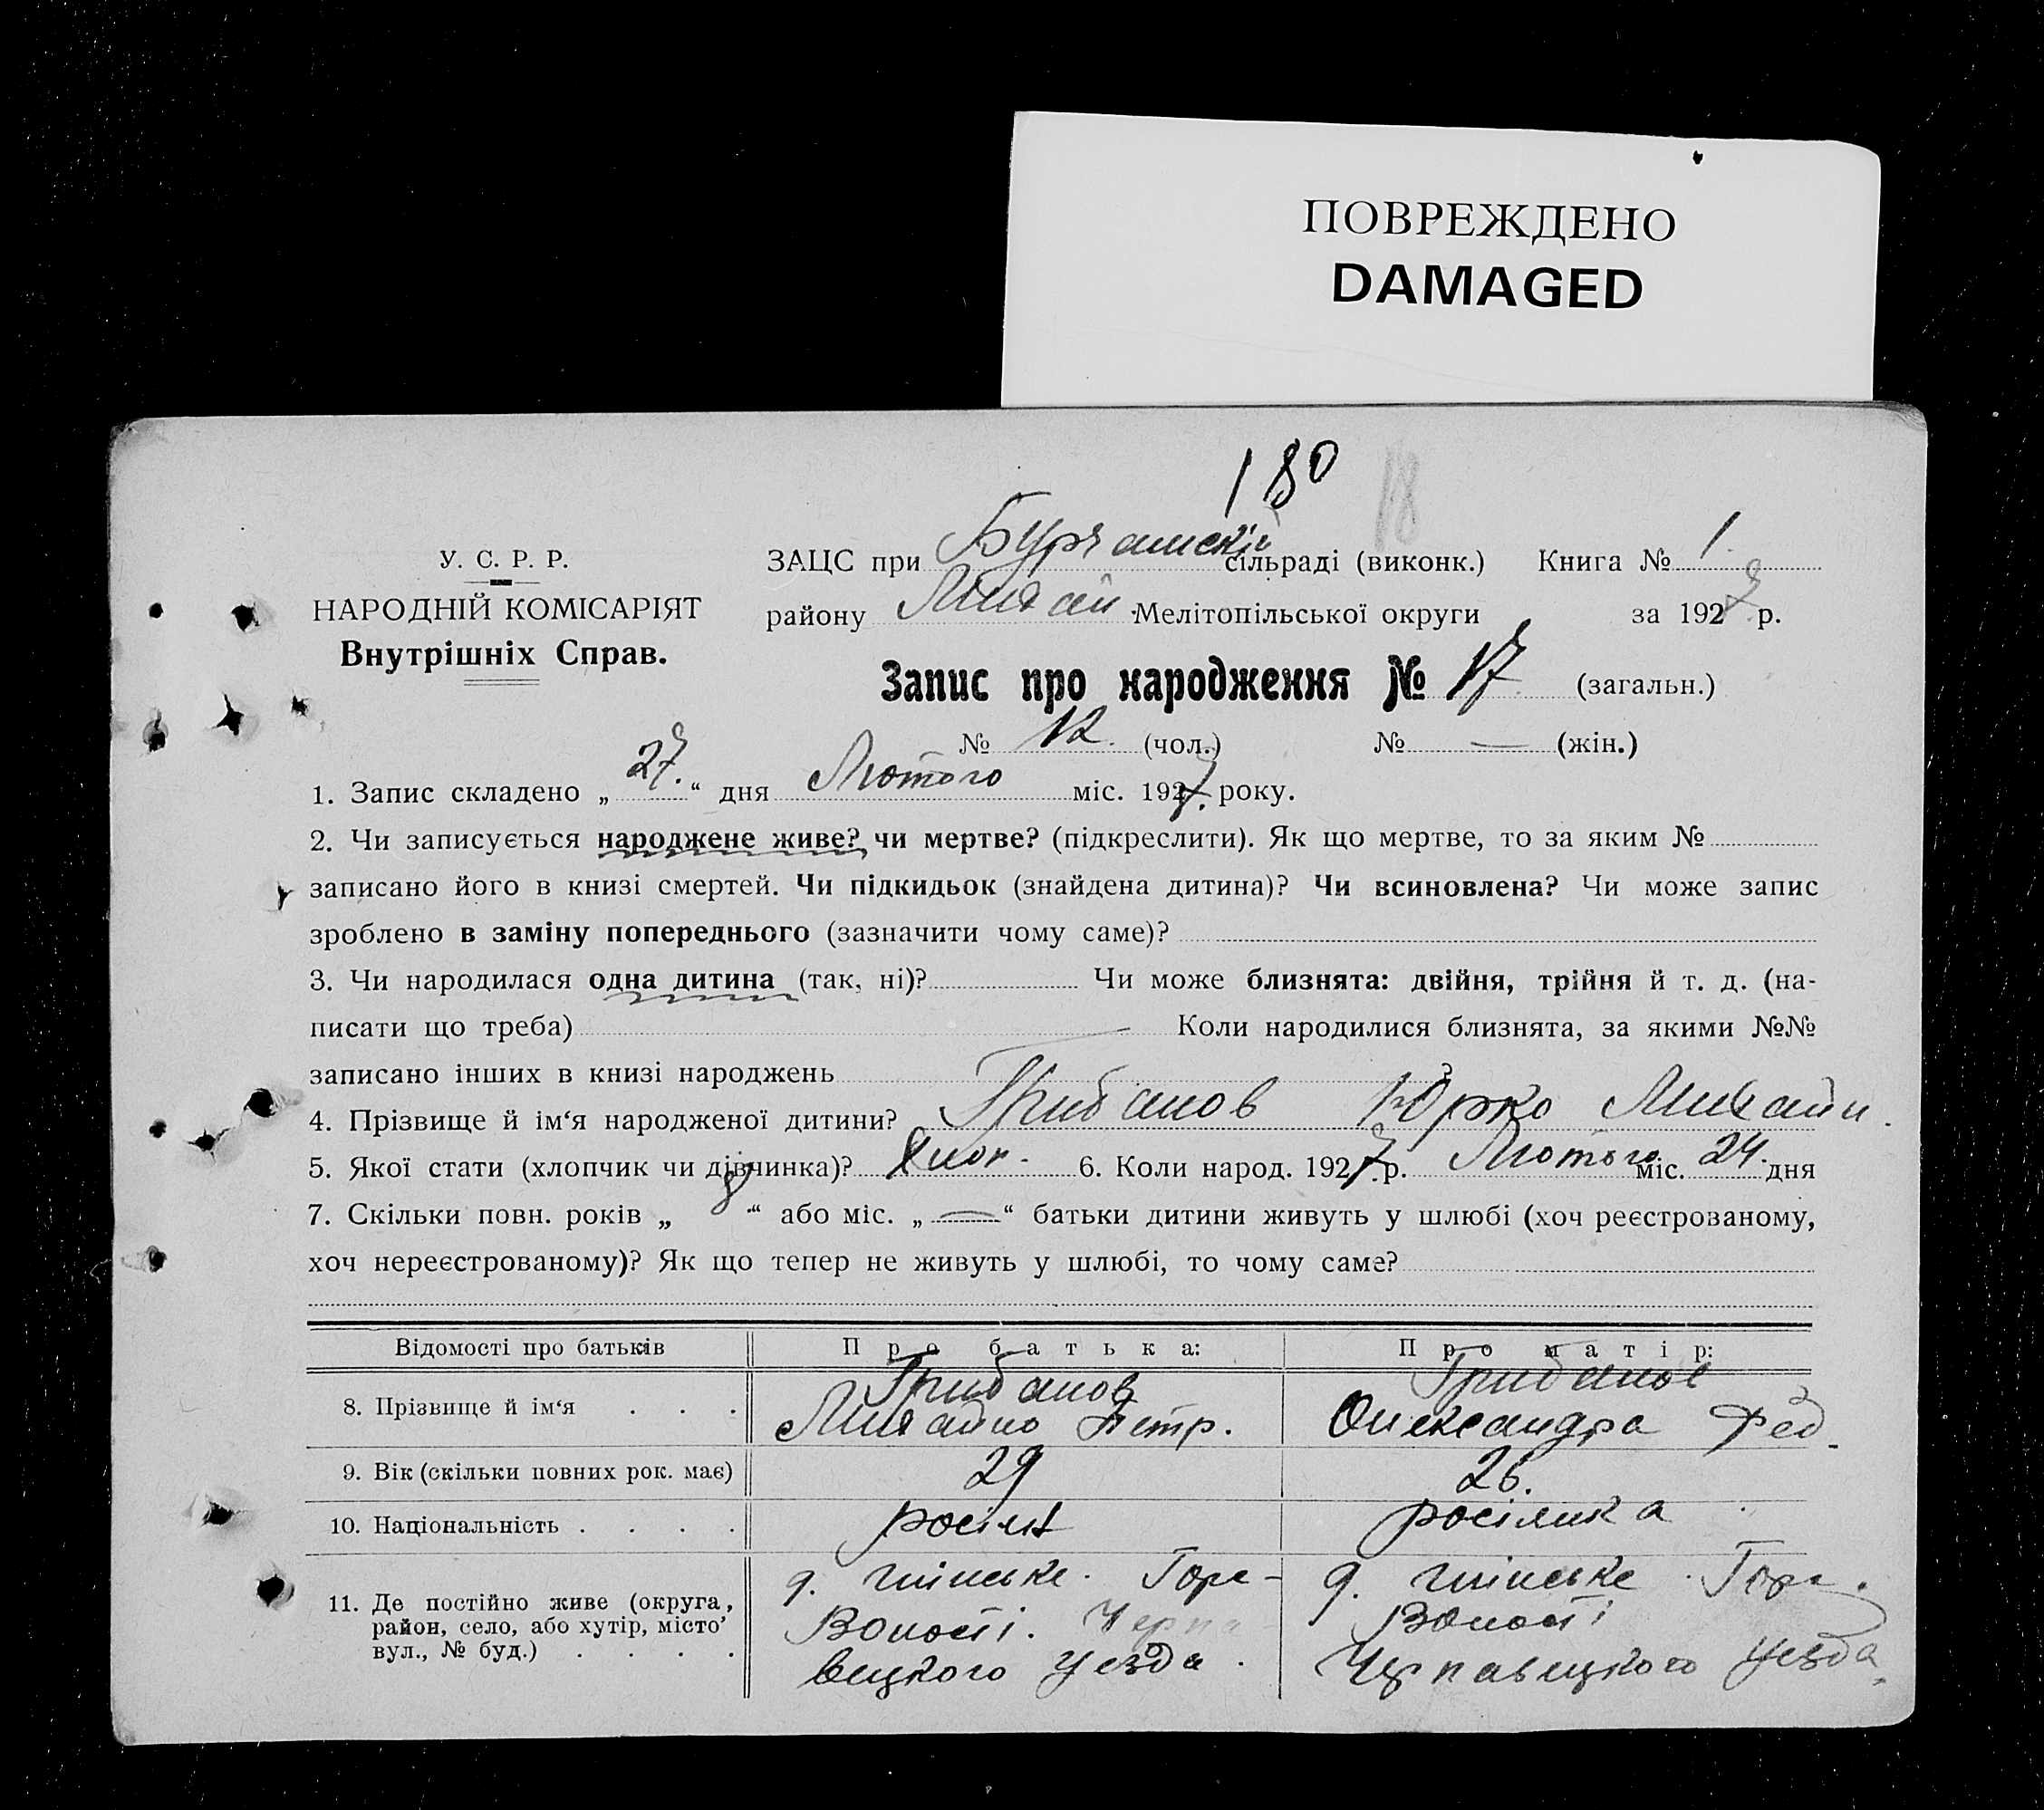 ПОВРЕЖДЕНО
DAMAGED
180 18
У. С. Р. Р.
НАРОДНІЙ КОМІСАРІЯТ
Внутрішніх Справ.
ЗАЦС при сільраді (виконк.) Книга № 1.
району Михай Мелітопільської округи за 1927 р.
Запис про народження № 17 (загальн.)
№ 12. (чол.) № — (жін.)
1. Запис складено „27.“ дня Лютого міс. 1927. року.
2. Чи записується народжене живе? чи мертве? (підкреслити). Як що мертве, то за яким №
записано його в книзі смертей. Чи підкидьок (знайдена дитина)? Чи всиновлена? Чи може запис
зроблено в заміну попереднього (зазначити чому саме)?
3. Чи народилася одна дитина (так, ні)? Чи може близнята: двійня, трійня й т. д. (на-
писати що треба) Коли народилися близнята, за якими №№
записано інших в книзі народжень
4. Прізвище й ім‘я народженої дитини? Грибанов Юрко Михайл.
5. Якої стати (хлопчик чи дівчинка)? Хлоп. 6. Коли народ. 1927. р. Лютого міс. 24. дня
7. Скільки повн. років „8“ або міс. „—“ батьки дитини живуть у шлюбі (хоч реєстрованому,
хоч нереєстрованому)? Як що тепер не живуть у шлюбі, то чому саме?
Відомості про батьків Про батька: Про матір:
8. Прізвище й ім‘я . . . Грибанов Михайло Петр. Грибанов Олександра Фед.
9. Вік (скільки повних рок. має) 29 26.
10. Національність . . . . росіян росіянка
11. Де постійно живе (округа,
район, село, або хутір, місто’
вул., № буд.) . . . .
д. Горс-
Волості.
вецкого уезда.
д. Горс.
Волості
уезда.